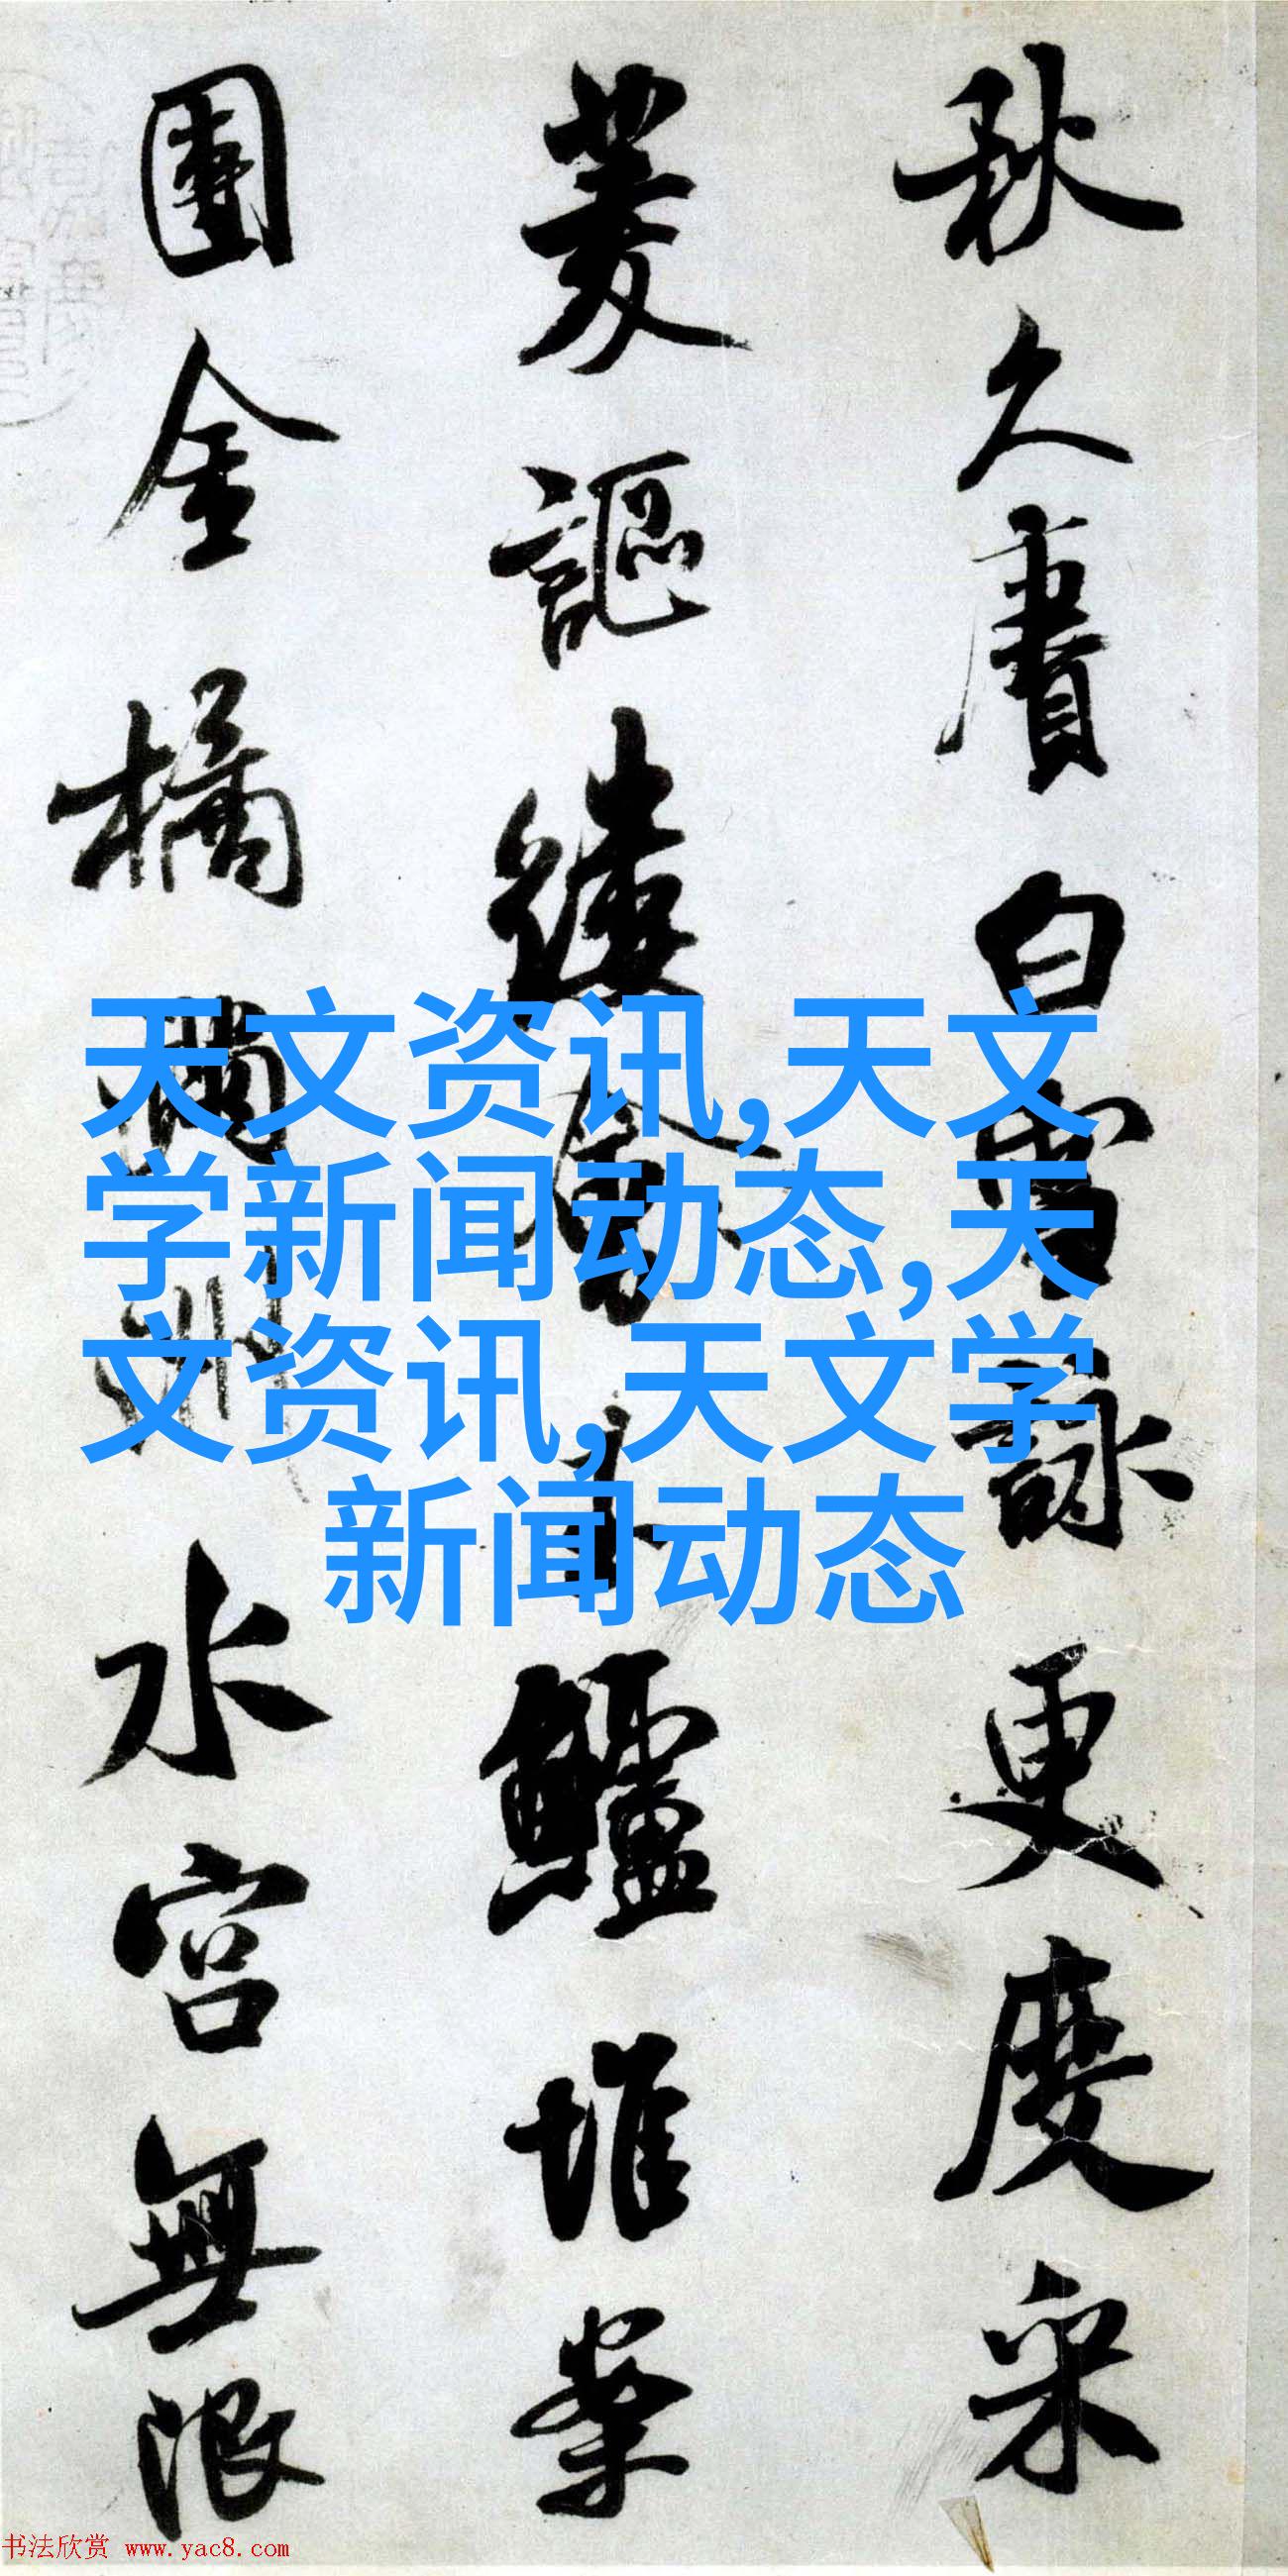 秋久賡白雪詠更度采
菱謳縷會鱸堆案
團金橘滿洲水宮無限
天文资讯,天文
学新闻动态,天
文资讯,天文学
新闻动态
书法欣赏 www.yac8.com